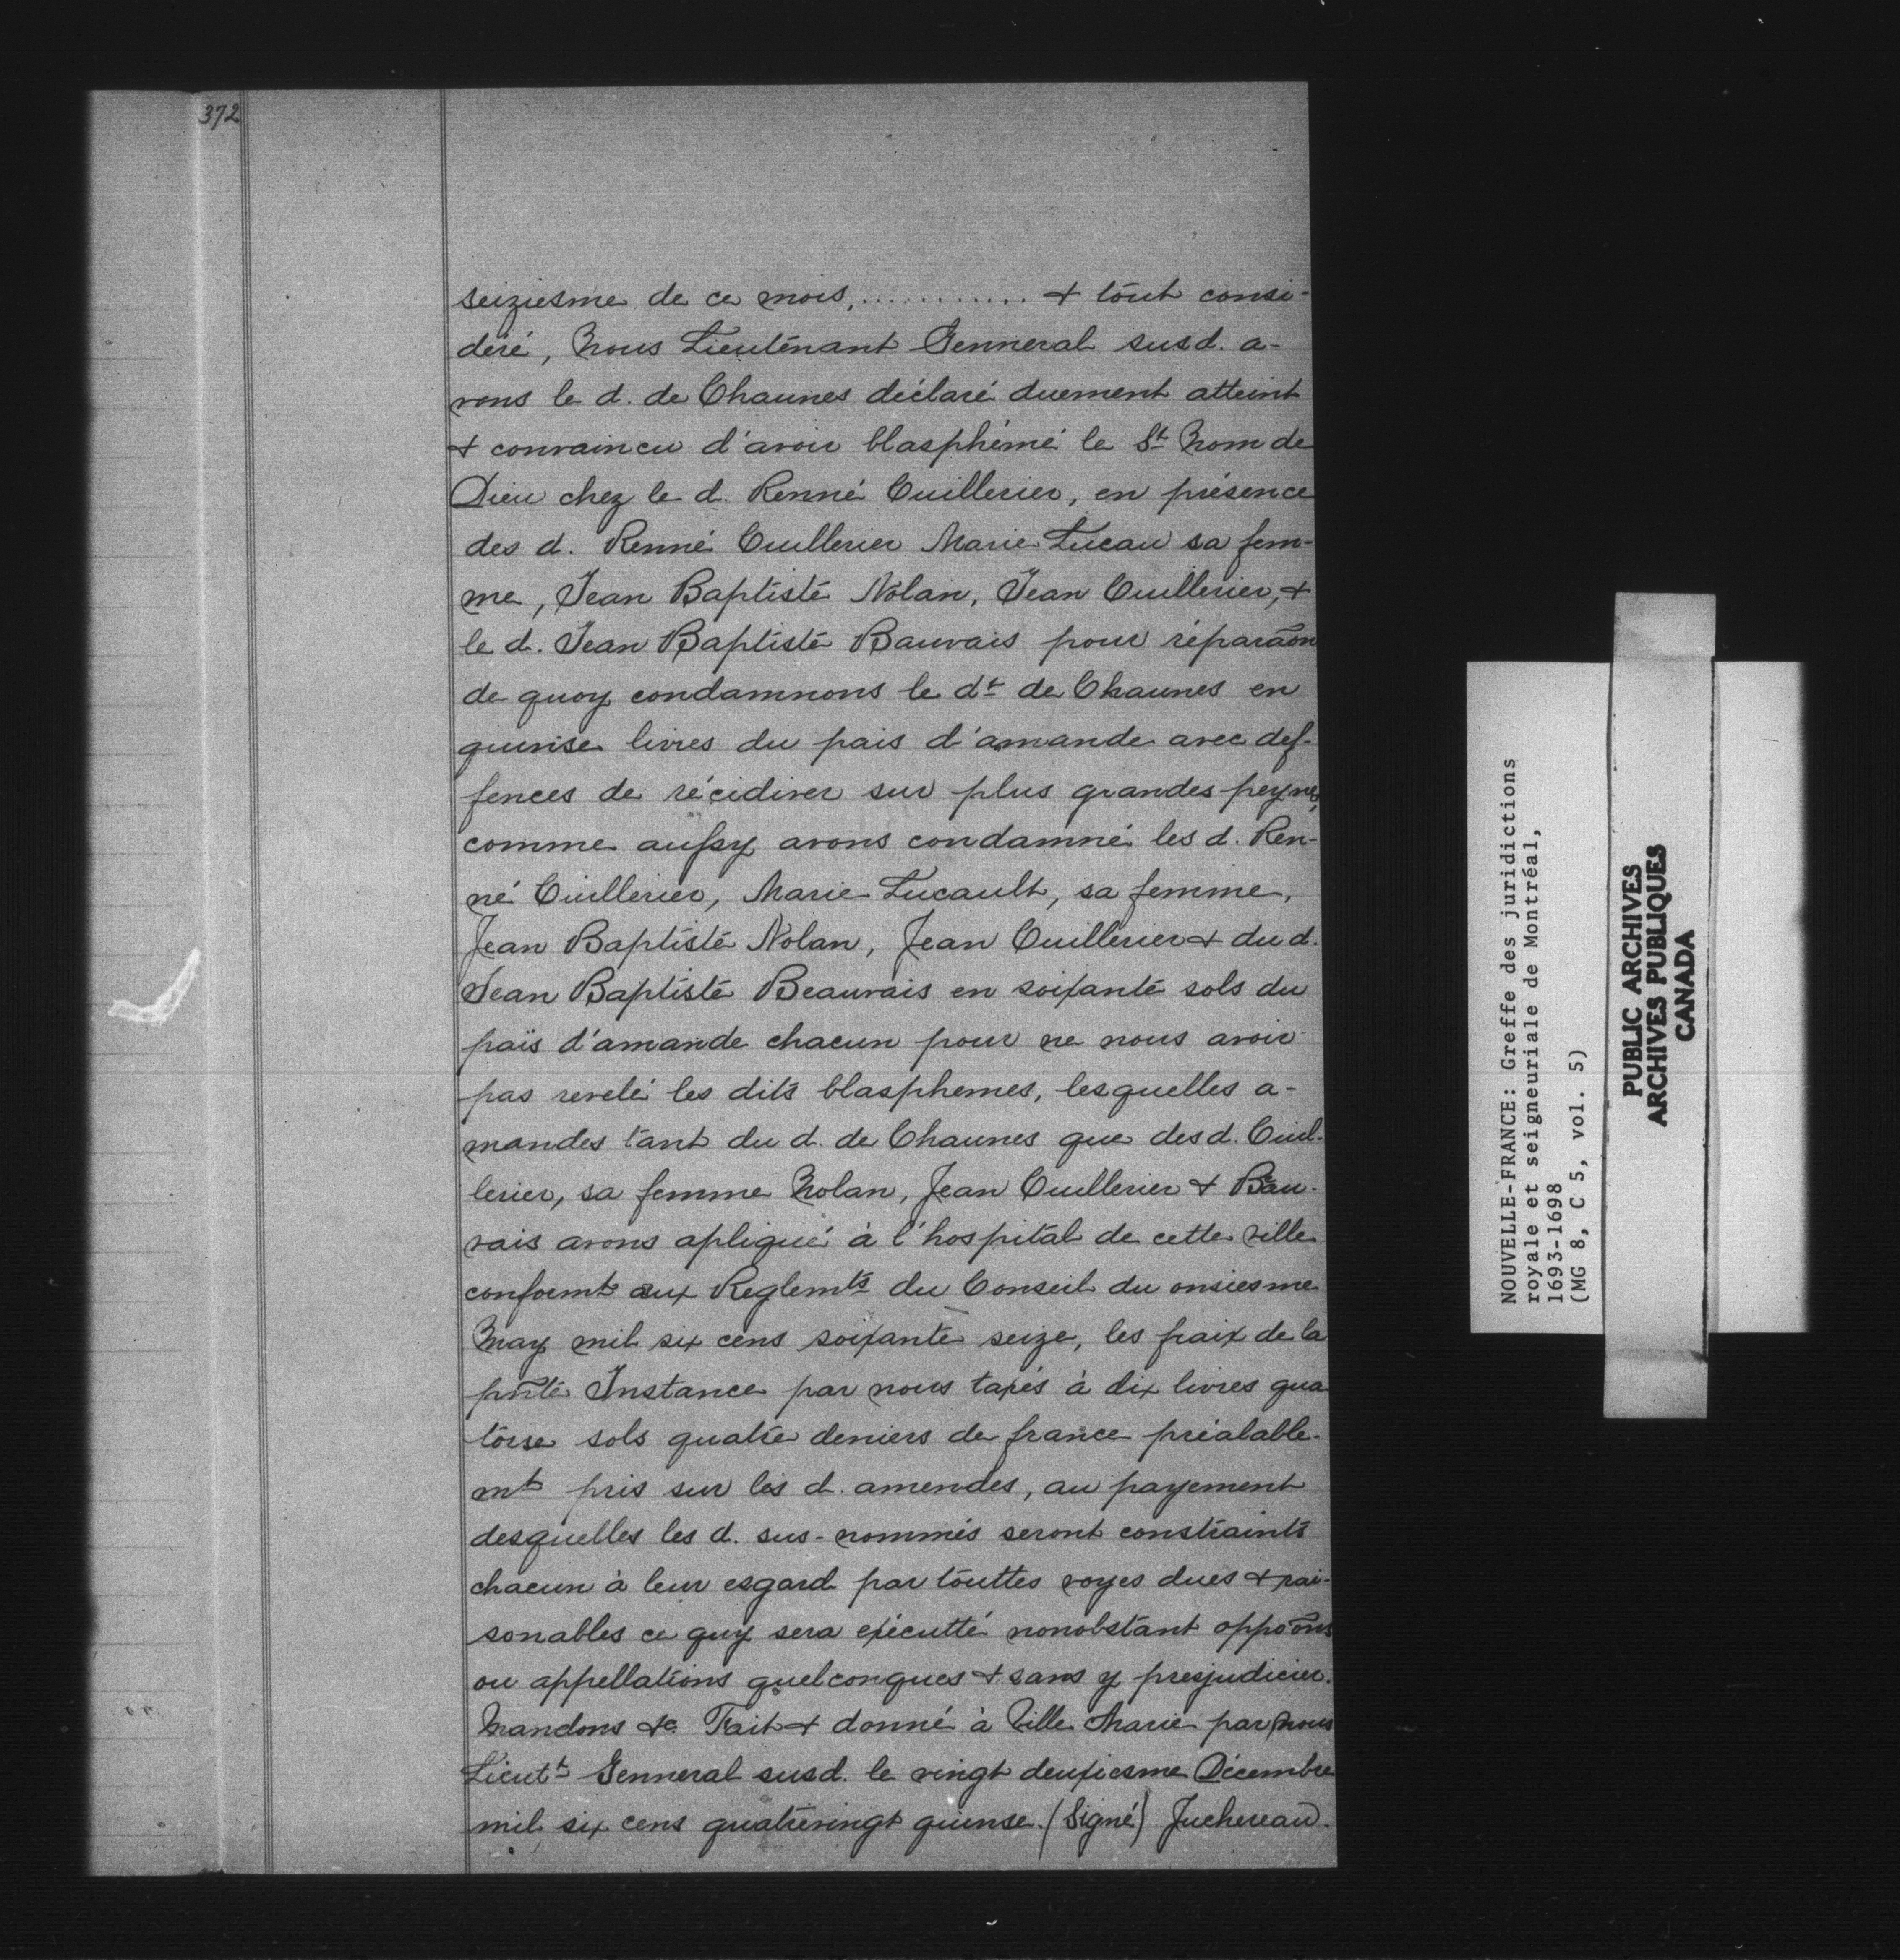 372
seiziesme de ce mois, ............ + tout consi-
déré, Nous Lieutenant Genneral susd. a-
vons le d. de Chaunes déclaré duement atteint
+ convaincu d'avoir blasphémé le St Nom de
Dieu chez le d. Renné Cuillerier, en présence
des d. Renné Cuillerier Marie Lucau sa fem-
me, Jean Baptiste Nolan, Jean Cuillerier, +
le d. Jean Baptiste Bauvais pour réparaõn
de quoy condamnons le dt de Chaunes en
quinse livres du pais d'amande avec def-
fences de récidiver sur plus grandes peynes,
comme aussy avons condamné les d. Ren-
né Cuillerier, Marie Lucault, sa femme,
Jean Baptiste Nolan, Jean Cuillerier + du d.
Jean Baptiste Beauvais en soixante sols du
païs d'amande chacun pour ne nous avoir
pas revelé les dits blasphemes, lesquelles a-
mandes tant du d. de Chaunes que des d. Cuil-
lerier, sa femme Nolan, Jean Cuillerier + Bau-
vais avons apliqué à l'hospital de cette ville
conformt aux Reglemts du Conseil du onsiesme
May mil six cens soixante seize, les fraix de la
pñte Instance par nous taxés à dix livres qua
torse sols quatre deniers de france préalable-
mt pris sur les d. amendes, au payement
desquelles les d. sus-nommés seront constraints
chacun à leur esgard par touttes voyes dues + rai-
sonables ce quy sera exécutté nonobstant oppoõns
ou appellations quelconques + sans y presjudicier.
Mandons &c. Fait + donné à Ville Marie par nous
Lieutt Genneral susd. le vingt deuxiesme Décembre
mil six cens quatrevingt quinse. (Signé) Juchereau.
NOUVELLE-FRANCE: Greffe des juridictions
royale et seigneuriale de Montréal,
1693-1698
(MG 8, C 5, vol. 5)
PUBLIC ARCHIVES
ARCHIVES PUBLIQUES
CANADA